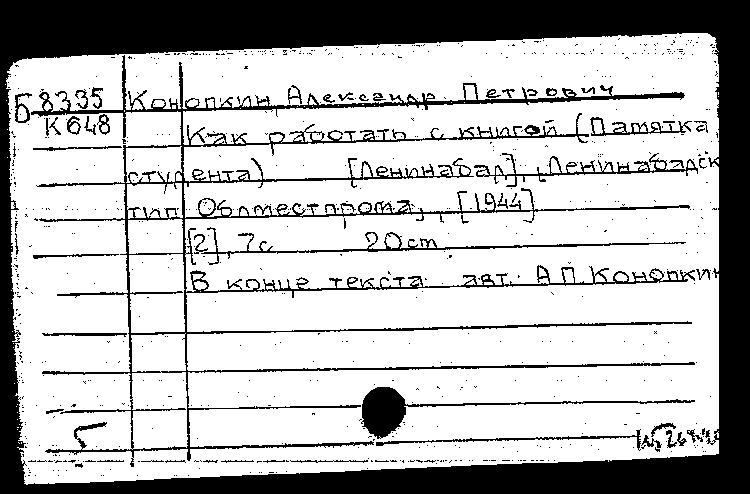 Б 8335 Конопкин, Александр Петрович
К 648 Как работать с книгой (Памятка
студента) [Ленинабад], Ленинабадск
тип Облместпрома, , [1944]
[2], 7с 20 cm
В конце текста авт. А П. Конопкин
Б